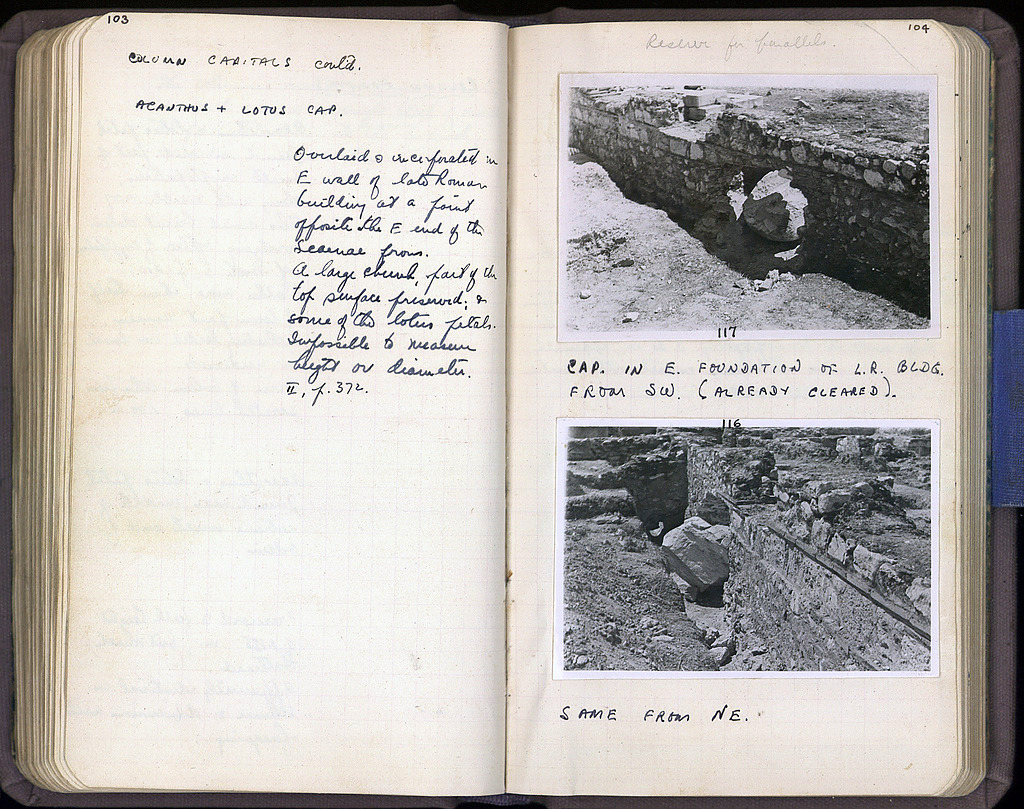 103
COLUMN CAPITALS cont'd.
ACANTHUS + LOTUS CAP.
Overlaid & incorporated in
E wall of late Roman
building at a point
opposite the E end of the
Scaenae frons.
A large chunk, part of the
top surface preserved; &
some of the lotus petals.
Impossible to measure
height or diameter.
II, p. 372.
104
Reserve for parallels.
117
CAP. IN E. FOUNDATION OF L.R. BLDG.
FROM SW. (ALREADY CLEARED).
116
SAME FROM NE.